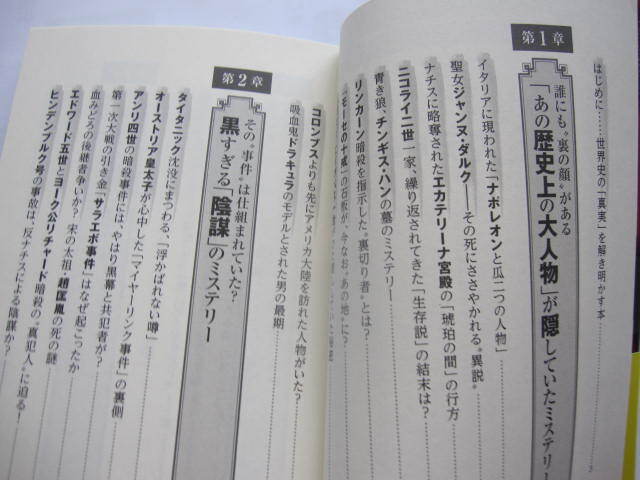 はじめに……世界史の「真実」を解き明かす本
第1章
誰にも〝裏の顔〟がある
「あの歴史上の大人物」が隠していたミステリー
イタリアに現われた「ナポレオンと瓜二つの人物」
聖女ジャンヌ・ダルク――その死にささやかれる〝異説〟
ナチスに略奪されたエカテリーナ宮殿の「琥珀の間」の行方
ニコライ二世一家、繰り返されてきた「生存説」の結末は?
青き狼、チンギス・ハンの墓のミステリー
リンカーン暗殺を指示した〝裏切り者〟とは?
「モーセの十戒」の石板が、今なお〝あの地〟に?
コロンブスよりも先にアメリカ大陸を訪れた人物がいた?
吸血鬼ドラキュラのモデルとされた男の最期
第2章
その〝事件〟は仕組まれていた?
黒すぎる「陰謀」のミステリー
タイタニック沈没にまつわる、「浮かばれない噂」
オーストリア皇太子が心中した「マイヤーリンク事件」の裏側
アンリ四世の暗殺事件には、やはり黒幕と共犯者が?
第一次大戦の引き金「サラエボ事件」はなぜ起こったか
血みどろの後継者争いか? 宋の太祖・趙匡胤の死の謎
エドワード五世とヨーク公リチャード暗殺の〝真犯人〟に迫る!
ヒンデンブルク号の事故は、反ナチスによる陰謀か?